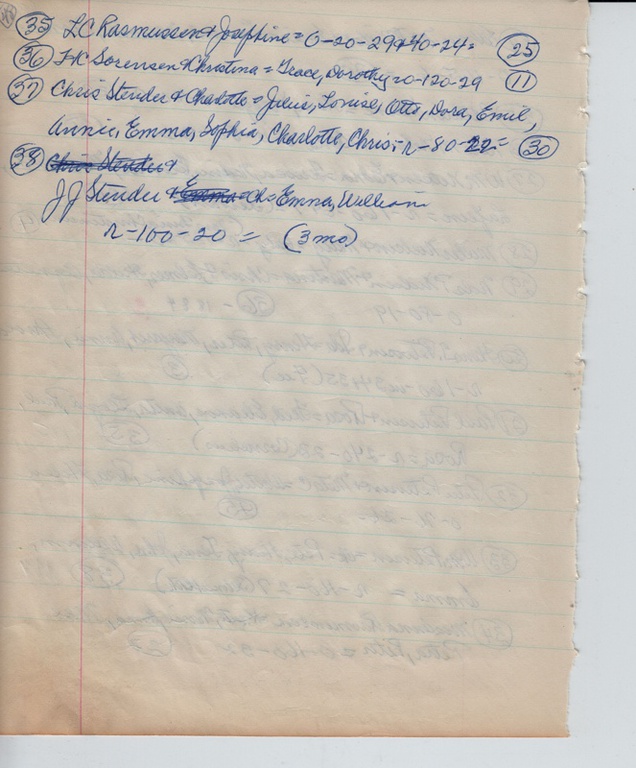 (35) LC Rasmussen & Josephine = 0-20-29 & 40-24 = (25)
(36) F K Sorensen & Christina = Grace, Dorothy = 0-120-29 (11)
(37) Chris Steuder & Charlotte = Julia, Louise, Otto, Dora, Emil,
Annie, Emma, Sophia, Charlotte, Chris, = r-80-22 = (30)
(38) Chris Steuder &
J J Steuder & Emma = ch = Emma, William
r-100-20 = (3 mo)